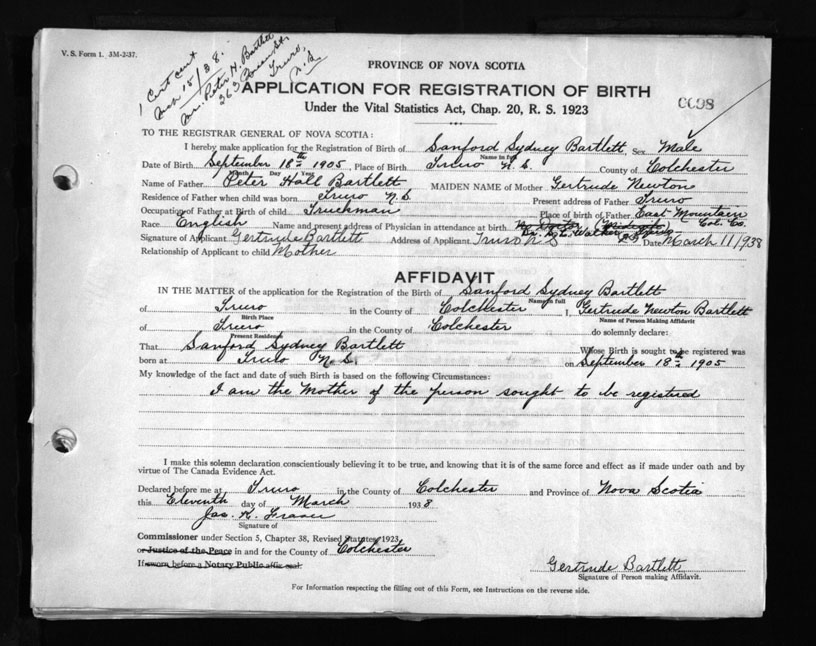 V. S. Form 1. 5M-2-37.
1 Cert sent
Mch 15/38.
Mrs. Peter H. Bartlett
363 Queen St.
Truro,
N.S.
PROVINCE OF NOVA SCOTIA
APPLICATION FOR REGISTRATION OF BIRTH
Under the Vital Statistics Act, Chap. 20, R. S. 1923
TO THE REGISTRAR GENERAL OF NOVA SCOTIA:
I hereby make application for the Registration of Birth of Sanford Sydney Bartlett, Sex Male
Name in full
Date of Birth September 18th 1905, Place of Birth Truro N.S. County of Colchester
Month Day Year
Name of Father Peter Hall Bartlett MAIDEN NAME of Mother Gertrude Newton
Residence of Father when child was born Truro N.S. Present address of Father Truro
Occupation of Father at Birth of child Truckman Place of birth of Father East Mountain
Col. Co.
Race English Name and present address of Physician in attendance at birth No Doctor (Midwife)
Signature of Applicant Gertrude Bartlett Address of Applicant Truro N S Date March 11/1938
Relationship of Applicant to child Mother
AFFIDAVIT
IN THE MATTER of the application for the Registration of the Birth of Sanford Sydney Bartlett
Name in full
of Truro in the County of Colchester I, Gertrude Newton Bartlett
Birth Place Name of Person Making Affidavit
of Truro in the County of Colchester do solemnly declare:
Present Residence
That Sanford Sydney Bartlett Whose Birth is sought to be registered was
born at Truro N.S. on September 18th 1905
My knowledge of the fact and date of such Birth is based on the following Circumstances:
I am the Mother of the person sought to be registered
I make this solemn declaration conscientiously believing it to be true, and knowing that it is of the same force and effect as if made under oath and by
virtue of The Canada Evidence Act.
Declared before me at Truro in the County of Colchester and Province of Nova Scotia
this Eleventh day of March 1938.
Jas. K. Fraser
Signature of
Commissioner under Section 5, Chapter 38, Revised Statutes, 1923,
or Justice of the Peace in and for the County of Colchester
If sworn before a Notary Public affix seal.
Gertrude Bartlett
Signature of Person making Affidavit.
For Information respecting the filling out of this Form, see Instructions on the reverse side.